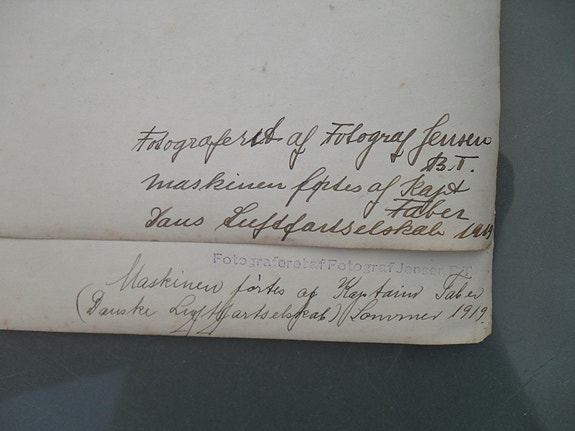 Fotograferet af Fotograf Jensen
B.T.
Maskinen førtes af Kapt
Faber
Dans Luftfartselskab 1919
Fotograferet af Fotograf Jensen B.T.
Maskinen førtes af Kaptaind Faber
(Danske Luftfartselskab) Sommer 1919.